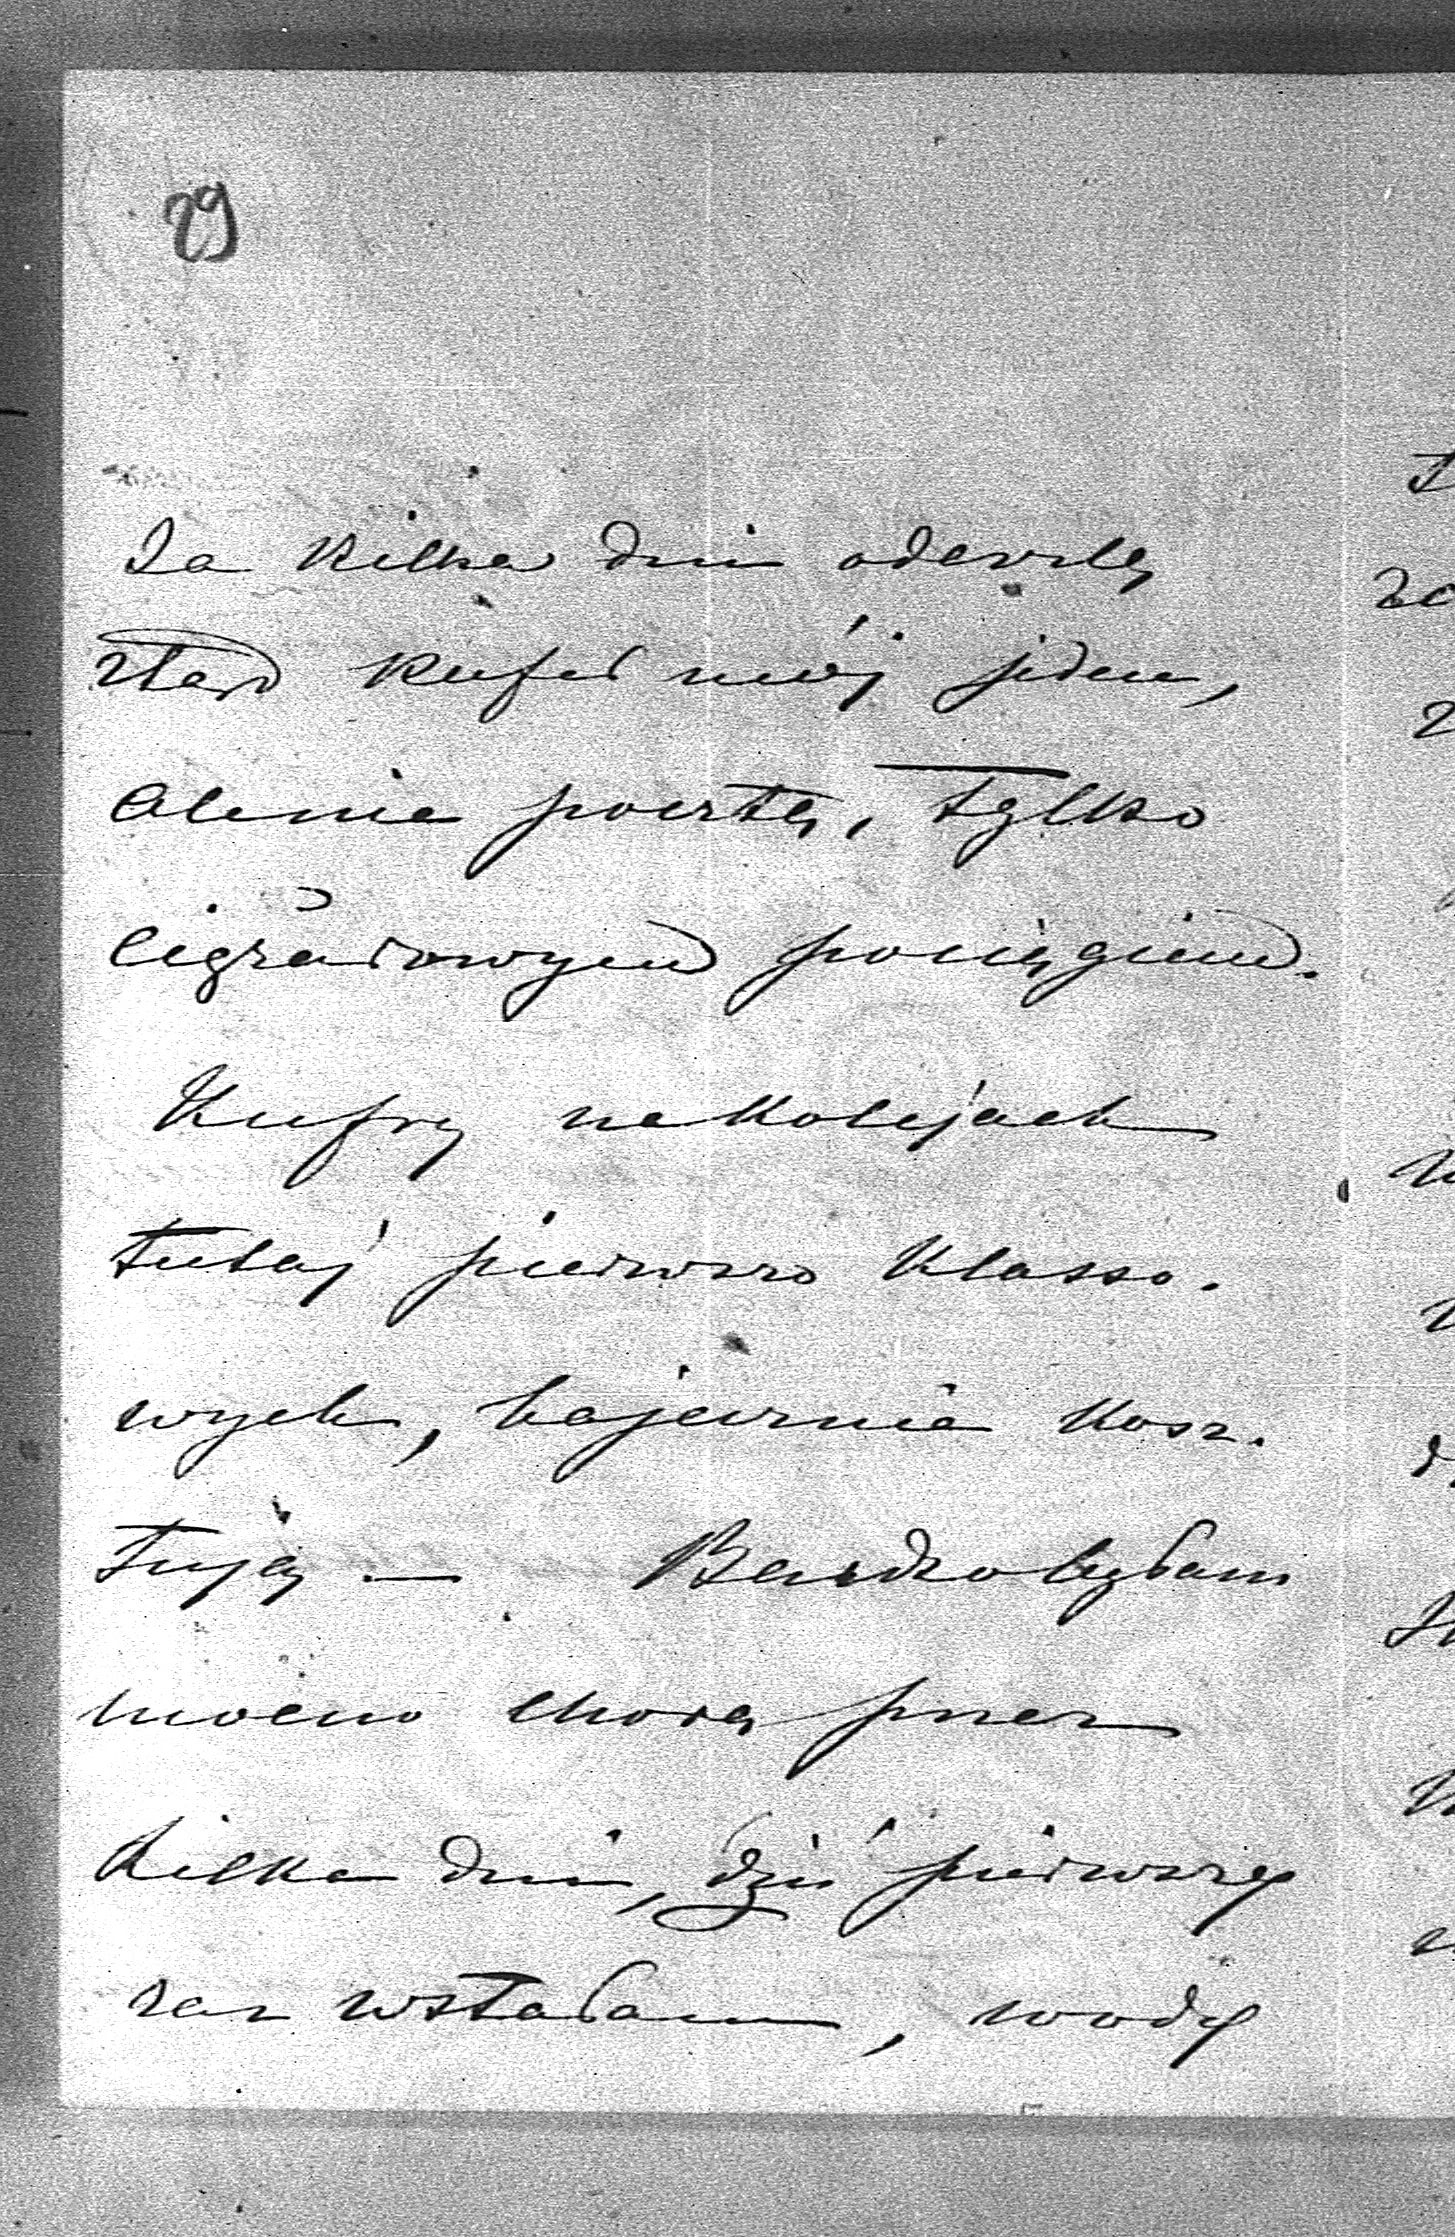 29
Za kilka dni odeszlę
ztąd kufer mój jeden,
ale nie pocztą, tylko
ciężarowym pociągiem.
Kufry na kolejach
tutaj pierwszo klasso-
wych, bajecznie kosz-
tują — Bardzo byłam
mocno chorą przez
kilka dni, dziś pierwszy
raz wstałam, wody